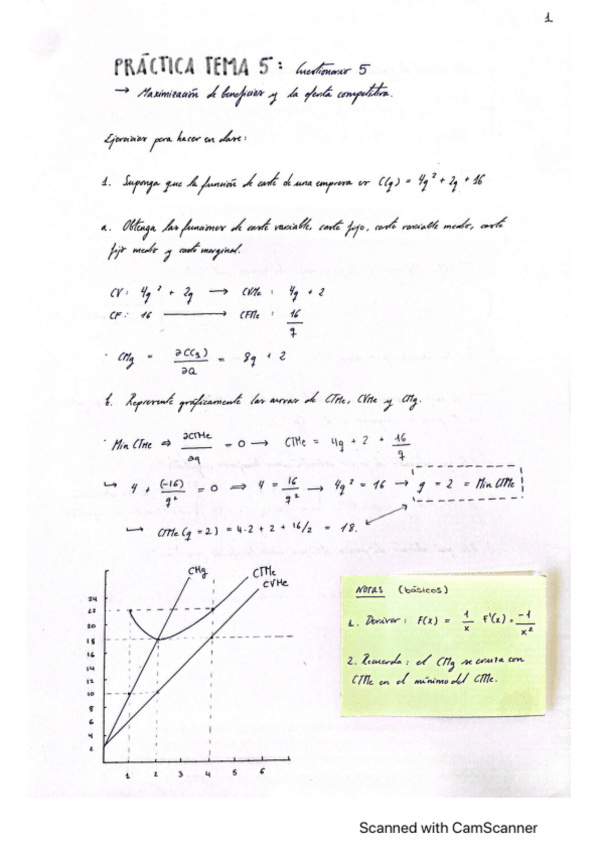 1
PRÁCTICA TEMA 5: Cuestionario 5
→ Maximización de beneficios y la oferta competitiva.
Ejercicios para hacer en clase:
1. Suponga que la función de coste de una empresa es C(q) = 4q² + 2q + 16
a. Obtenga las funciones de coste variable, coste fijo, coste variable medio, coste
fijo medio y coste marginal.
CV: 4q² + 2q → CVMe: 4q + 2
CF: 16 → CFMe: 16/q
· CMg = ∂C(q)/∂Q = 8q + 2
b. Represente gráficamente las curvas de CTMe, CVMe y CMg.
· Min CTMe ⇒ ∂CTMe/∂q = 0 → CTMe = 4q + 2 + 16/q
↳ 4 + (-16)/q² = 0 ⇒ 4 = 16/q² → 4q² = 16 → q = 2 = Min CTMe
↳ CTMe (q = 2) = 4·2 + 2 + 16/2 = 18.
CMg
CTMe
CVMe
24
22
20
18
16
14
12
10
8
6
4
2
1 2 3 4 5 6
NOTAS (básicos)
1. Derivar: F(x) = 1/x F'(x) = -1/x²
2. Recuerda: el CMg se cruza con
CTMe en el mínimo del CMe.
Scanned with CamScanner